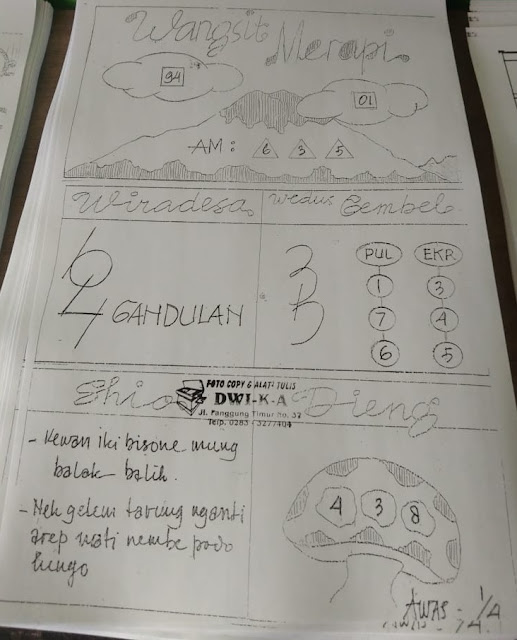 Wangsit Merapi
94
01
AM : 6 3 5
Wiradesa
Wedus Gembel
6
4 GANDULAN
3
5
PUL EKR
1 3
7 4
6 5
Shio
Dieng
FOTO COPY & ALAT² TULIS
DWI-K-A
Jl. Panggung Timur No. 37
Telp. 0283 - 3277404
- Kewan iki bisone mung
balak - balik.
- Nek gelem tarung nganti
arep mati nembe podo
lungo
4 3 8
AWAS - 1/4